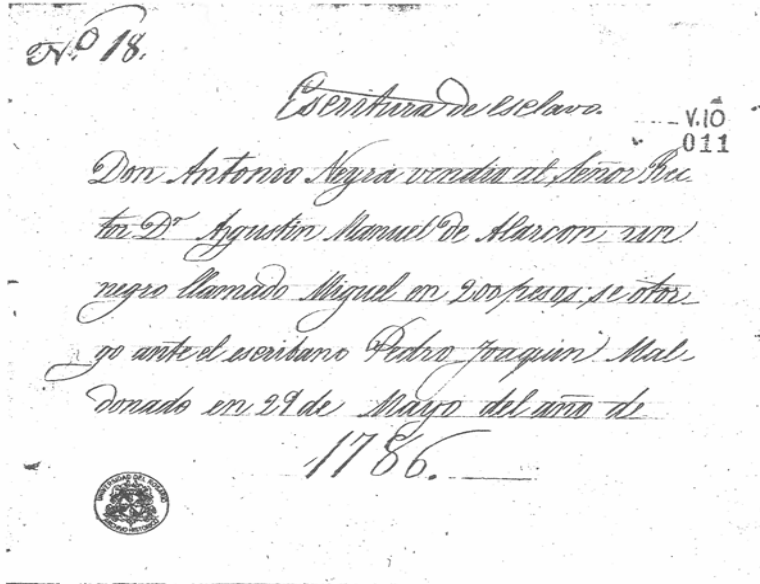 No 18.
Escritura de esclavo.
V.10
011
Don Antonio Neyra vendio al Señor Rec-
tor Dr Agustin Manuel de Alarcon un
negro llamado Miguel en 200 pesos: se otor-
go ante el escribano Pedro Joaquin Mal-
donado en 29 de Mayo del año de
1786.
UNIVERSIDAD DEL ROSARIO
ARCHIVO HISTORICO